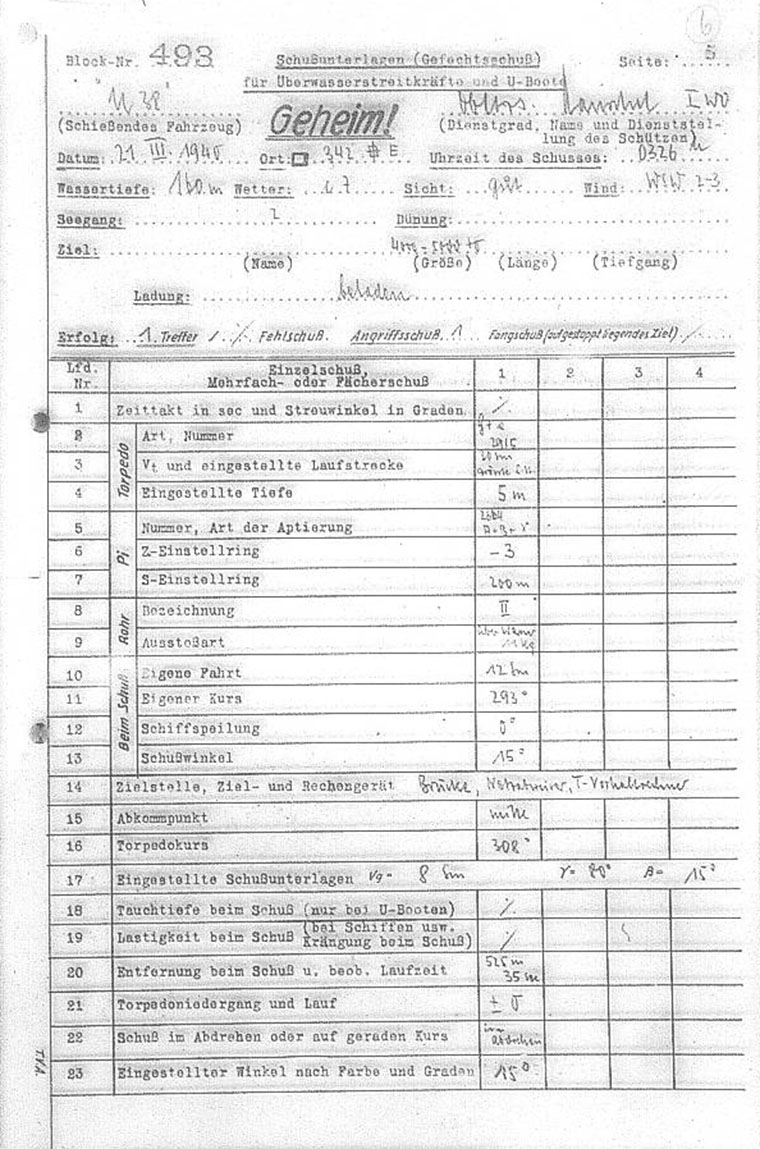 6
Block-Nr. 493 Schußunterlagen (Gefechtsschuß) Seite: 5
für Überwasserstreitkräfte und U-Boote
"U 38" Geheim! I WO
(Schießendes Fahrzeug) (Dienstgrad, Name und Dienststel-
lung des Schützen)
Datum: 21. III. 1940 Ort: 342 # E Uhrzeit des Schusses: 0326
Wassertiefe: 160 m Wetter: Sicht: gut Wind: WSW 2-3
Seegang: 2 Dünung:
Ziel: 4000-5000 to
(Name) (Größe) (Länge) (Tiefgang)
Ladung: beladen
Erfolg: 1. Treffer / ./. Fehlschuß. Angriffsschuß 1 Fangschuß (auf gestoppt liegendes Ziel) ./.
Lfd. Nr. Einzelschuß, Mehrfach- oder Fächerschuß 1 2 3 4
1 Zeittakt in sec und Streuwinkel in Graden ./.
Torpedo
2 Art, Nummer
3 Vt und eingestellte Laufstrecke
4 Eingestellte Tiefe 5 m
Pi
5 Nummer, Art der Aptierung
6 Z-Einstellring -3
7 S-Einstellring 200 m
Rohr
8 Bezeichnung II
9 Ausstoßart
Beim Schuß
10 Eigene Fahrt 12 sm
11 Eigener Kurs 293°
12 Schiffspeilung 0°
13 Schußwinkel 15°
14 Zielstelle, Ziel- und Rechengerät Brücke, T-Vorhaltrechner
15 Abkommpunkt mitte
16 Torpedokurs 308°
17 Eingestellte Schußunterlagen Vg= 8 sm γ= 80° β= 15°
18 Tauchtiefe beim Schuß (nur bei U-Booten) ./.
19 Lastigkeit beim Schuß (bei Schiffen usw. Krängung beim Schuß) ./.
20 Entfernung beim Schuß u. beob. Laufzeit 525 m 35
21 Torpedoniedergang und Lauf ± 0
22 Schuß im Abdrehen oder auf geraden Kurs im Abdrehen
23 Eingestellter Winkel nach Farbe und Graden 15°
T.V.A.